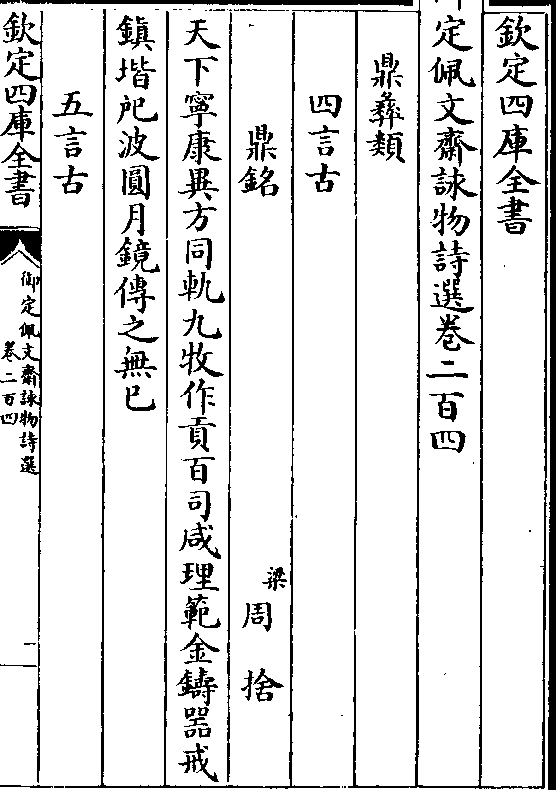 欽定四庫全書
定佩文齋詠物詩選卷二百四
鼎彝類
四言古
鼎銘
梁周捨
天下寧康異方同軌九牧作貢百司咸理範金鑄器戒
鎮堦戺波圓月鏡傳之無已
五言古
欽定四庫全書
御定佩文齋詠物詩選
卷二百四
一